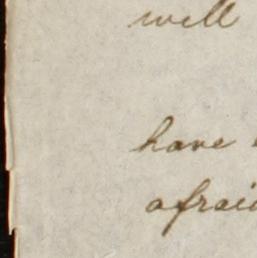 well
have
afraid